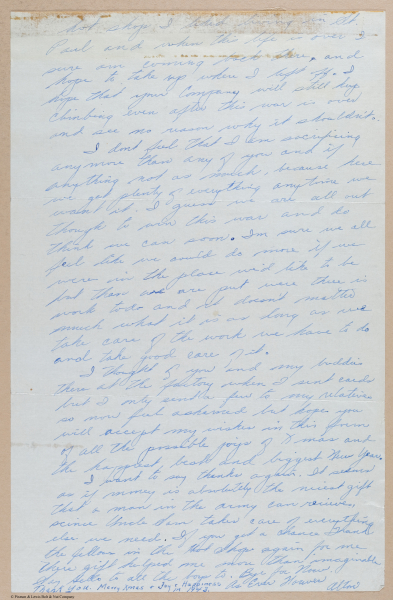 hot shop I liked working with
Paul and when this life is over I
sure am coming back there, and
hope to take up where I left off. I
hope that your Company will still keep
climbing even after this war is over
and see no reason why it shouldn't.
I dont feel that I am sacrificing
any more than any of you and if
anything not as much, because here
we get plenty of everything anytime we
want it. I guess we are all out
though to win this war and do
think we can soon. Im sure we all
feel like we could do more if we
were in the place we'd like to be
but then as are put were there is
work to do and it doesn't matter
much what it is as long as we
take care of the work we have to do
and take good care of it.
I thought of you and my buddies
there at the factory when I sent cards
but I only sent a few to my relatives
so now feel ashamed but hope you
will accept my wishes in this form
of all the possible joys of Xmas and
the happiest, best and biggest New Years.
I want to say thanks again. It seems
as if money is absolutely the nicest gift
that a man in the army can recieve,
scince Uncle Sam takes care of everything
else we need. If you get a chance thank
the fellows in the Hot Shop again for me
their gift helped me more than imaginable
Say hello to all the boys. Bye for Now.
Thank you. Merry Xmas + Joy + Happiness
in 1943. As Ever
Allen